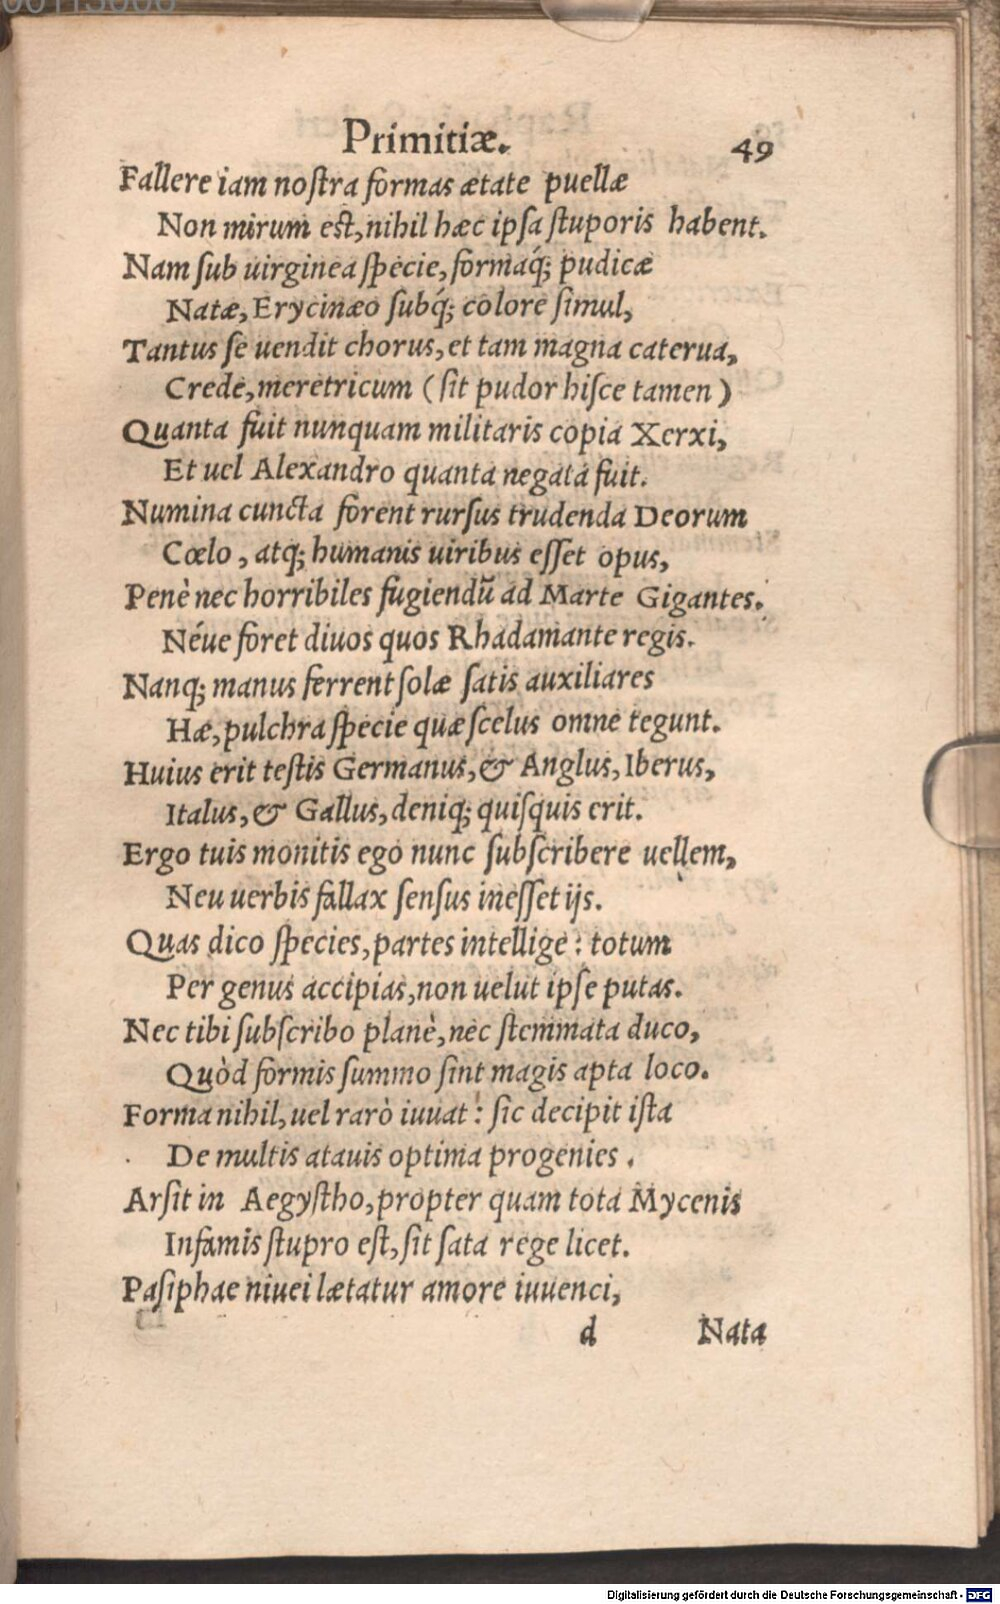 00113006
Primitiæ. 49
Fallere iam noſtra formas ætate puellæ
Non mirum eſt, nihil hæc ipſa ſtuporis habent.
Nam ſub uirginea ſpecie, formaq́; pudicæ
Natæ, Erycinæo ſubq́; colore ſimul,
Tantus ſe uendit chorus, et tam magna caterua,
Crede, meretricum (ſit pudor hiſce tamen)
Quanta fuit nunquam militaris copia Xerxi,
Et uel Alexandro quanta negata fuit.
Numina cuncta forent rurſus trudenda Deorum
Cœlo, atq; humanis uiribus eſſet opus,
Penè nec horribiles fugiendũ ad Marte Gigantes.
Néue foret diuos quos Rhadamante regis.
Nanq; manus ferrent ſolæ ſatis auxiliares
Hæ, pulchra ſpecie quæ ſcelus omne tegunt.
Huius erit teſtis Germanus, & Anglus, Iberus,
Italus, & Gallus, deniq; quiſquis erit.
Ergo tuis monitis ego nunc ſubſcribere uellem,
Neu uerbis fallax ſenſus ineſſet ijs.
Quas dico ſpecies, partes intellige: totum
Per genus accipias, non uelut ipſe putas.
Nec tibi ſubſcribo planè, nec ſtemmata duco,
Quòd formis ſummo ſint magis apta loco.
Forma nihil, uel rarò iuuat: ſic decipit iſta
De multis atauis optima progenies.
Arſit in Aegyſtho, propter quam tota Mycenis
Infamis ſtupro eſt, ſit ſata rege licet.
Paſiphae niuei lætatur amore iuuenci,
d Nata
Digitalisierung gefördert durch die Deutsche Forschungsgemeinschaft - DFG